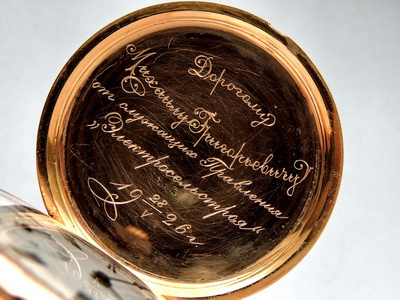 Дорогому
Михаилу Григорьевичу
от служащих Правления
„Электросельстроя“
19 28/V 26 г.